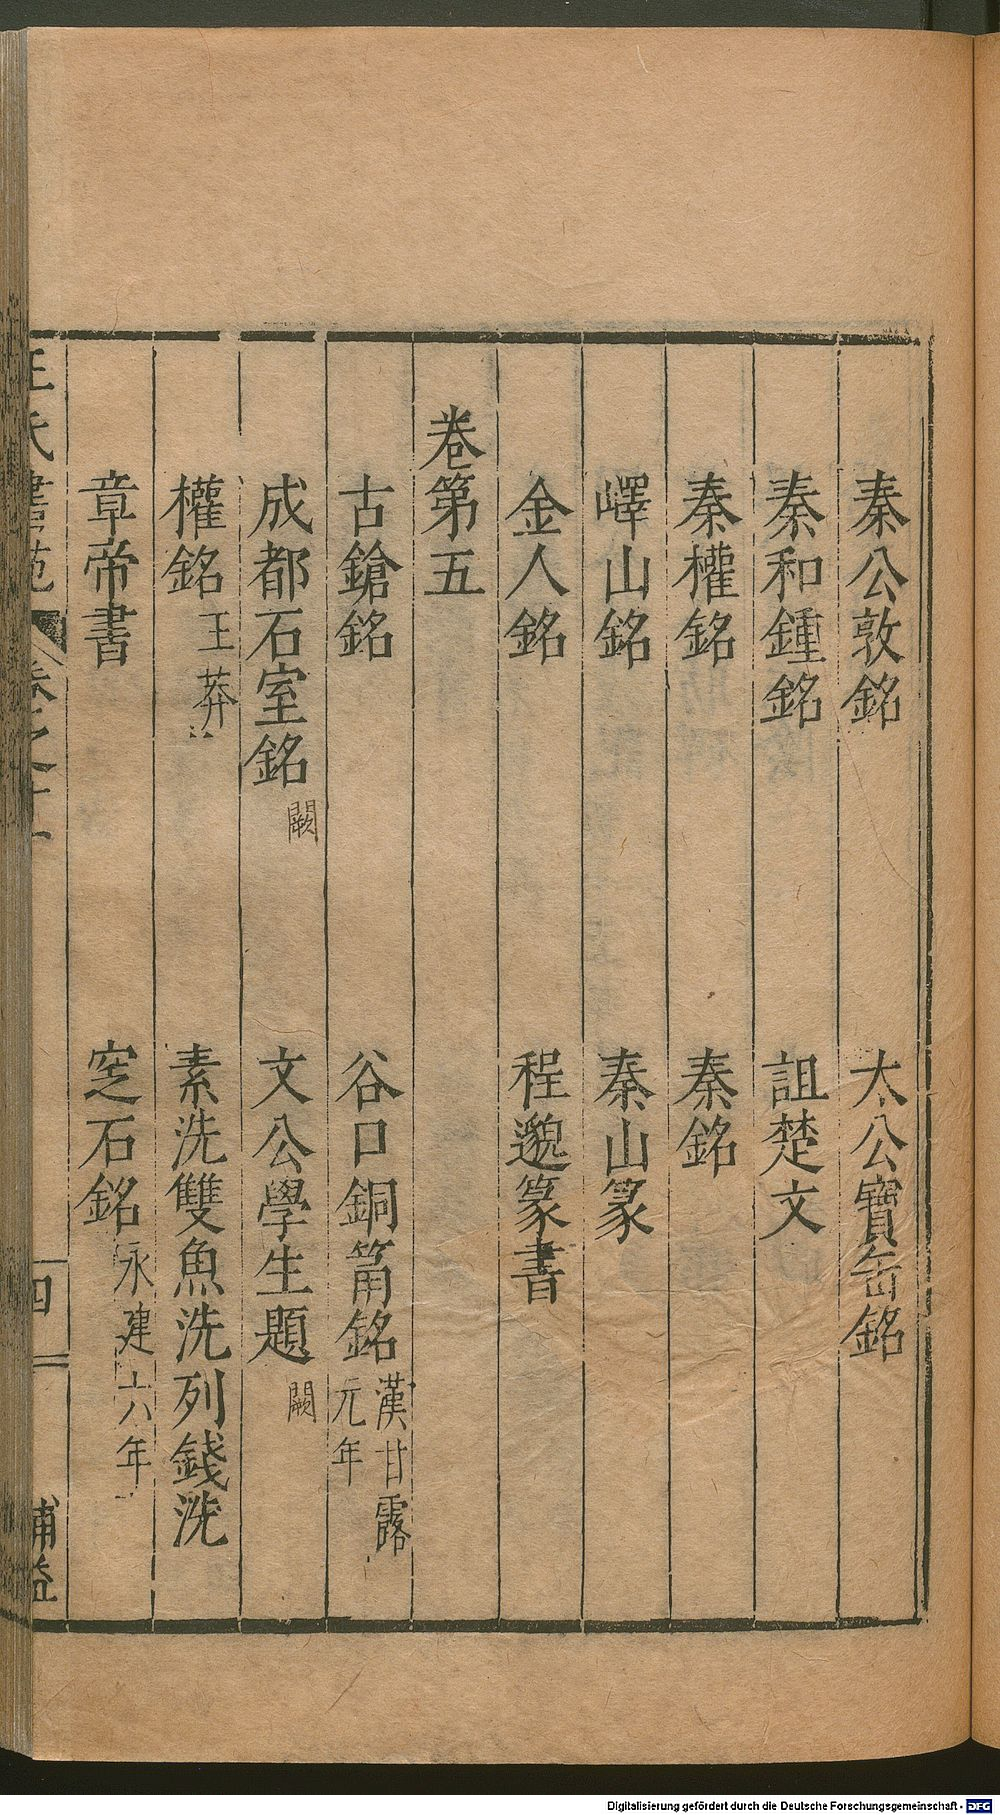 秦公敦銘　太公寶缶銘
秦和鍾銘　詛楚文
秦權銘　秦銘
嶧山銘　秦山篆
金人銘　程邈篆書
卷第五
古鎗銘　谷口銅筩銘 漢甘露元年
成都石室銘 闕　文公學生題 闕
權銘 王莽　素洗雙魚洗列錢洗
章帝書　窆石銘 永建六年
王氏書苑 卷之十 四 補益
Digitalisierung gefördert durch die Deutsche Forschungsgemeinschaft - DFG